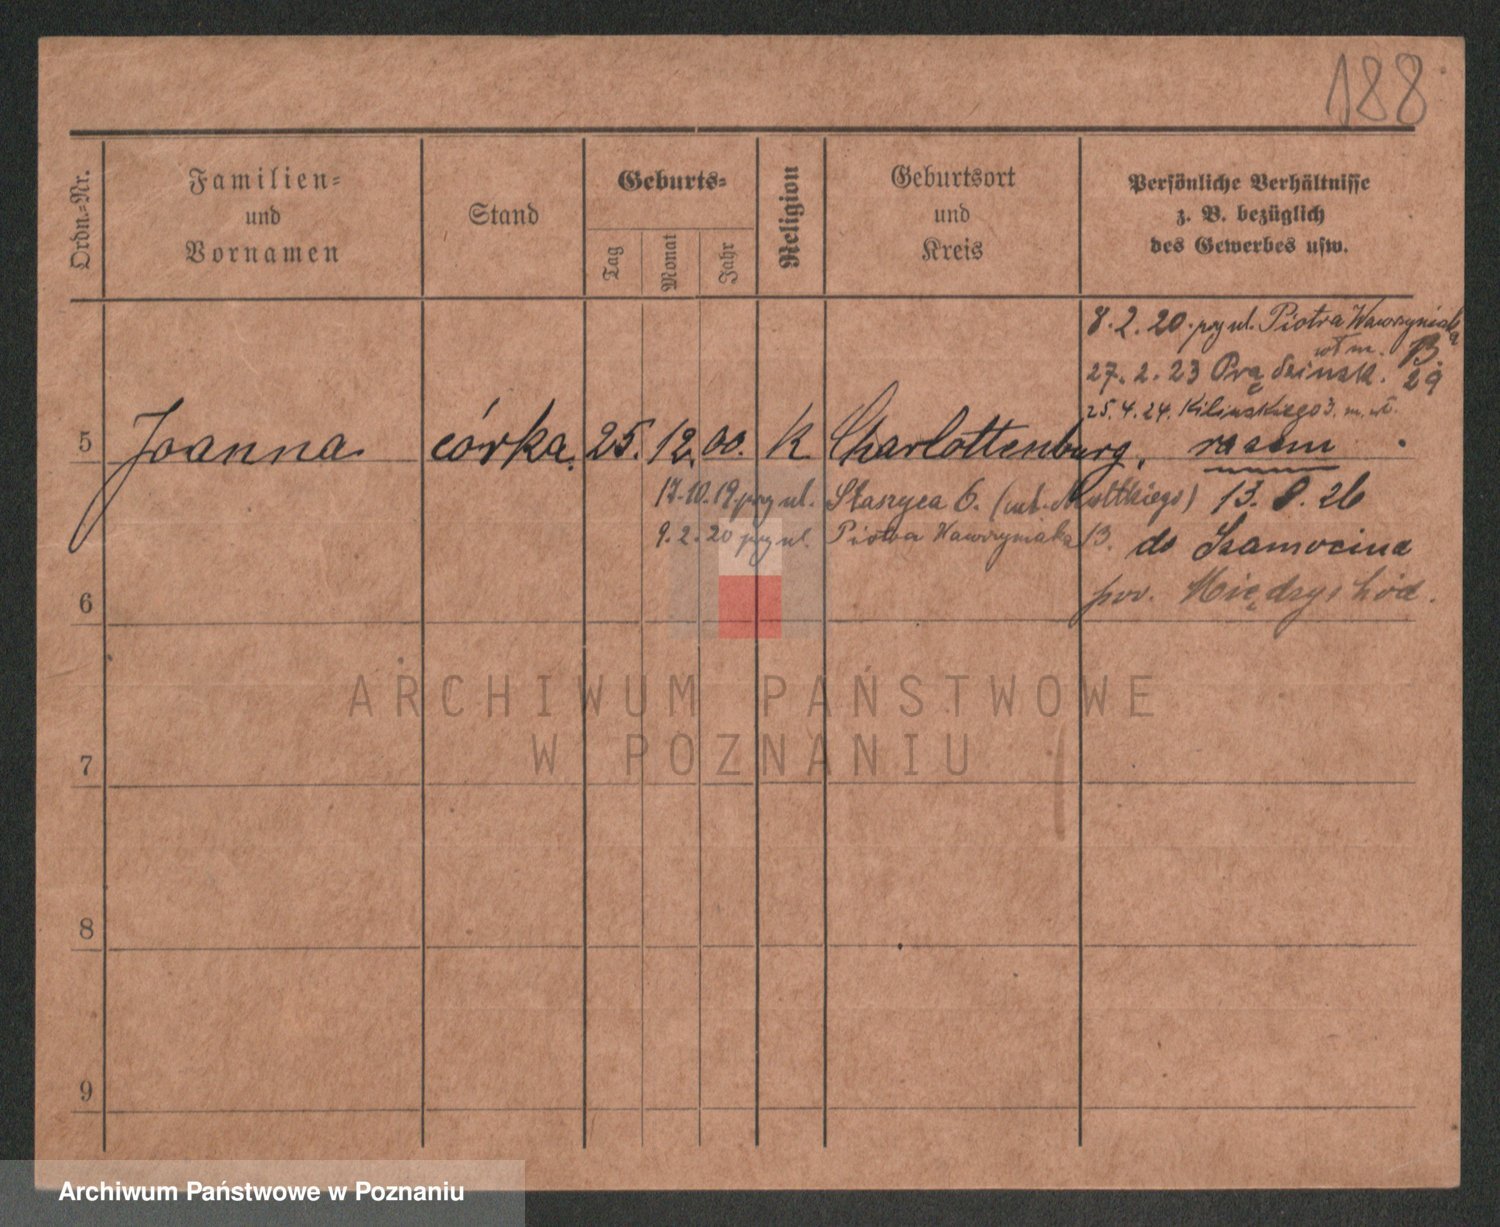 188
Ordn.-Nr.
Familien-
und
Vornamen
Stand
Geburts-
Tag
Monat
Jahr
Religion
Geburtsort
und
Kreis
Persönliche Verhältnisse
z. B. bezüglich
des Gewerbes usw.
8.2.20. przy ul. Piotra Wawrzyniaka
13.
27.2.23 Prądzińsk. 29
25.4.24. Kilińskiego 3.
5 Joanna córka. 25. 12. 00. k Charlottenburg, razem
17.10.19. przy ul. Staszyca 6. (Moltkiego) 13. 8. 26
9.2.20 przy ul. Piotra Wawrzyniaka 13. do Szamocina
6 pow. Międzychód.
ARCHIWUM PAŃSTWOWE
W POZNANIU
7
8
9
Archiwum Państwowe w Poznaniu